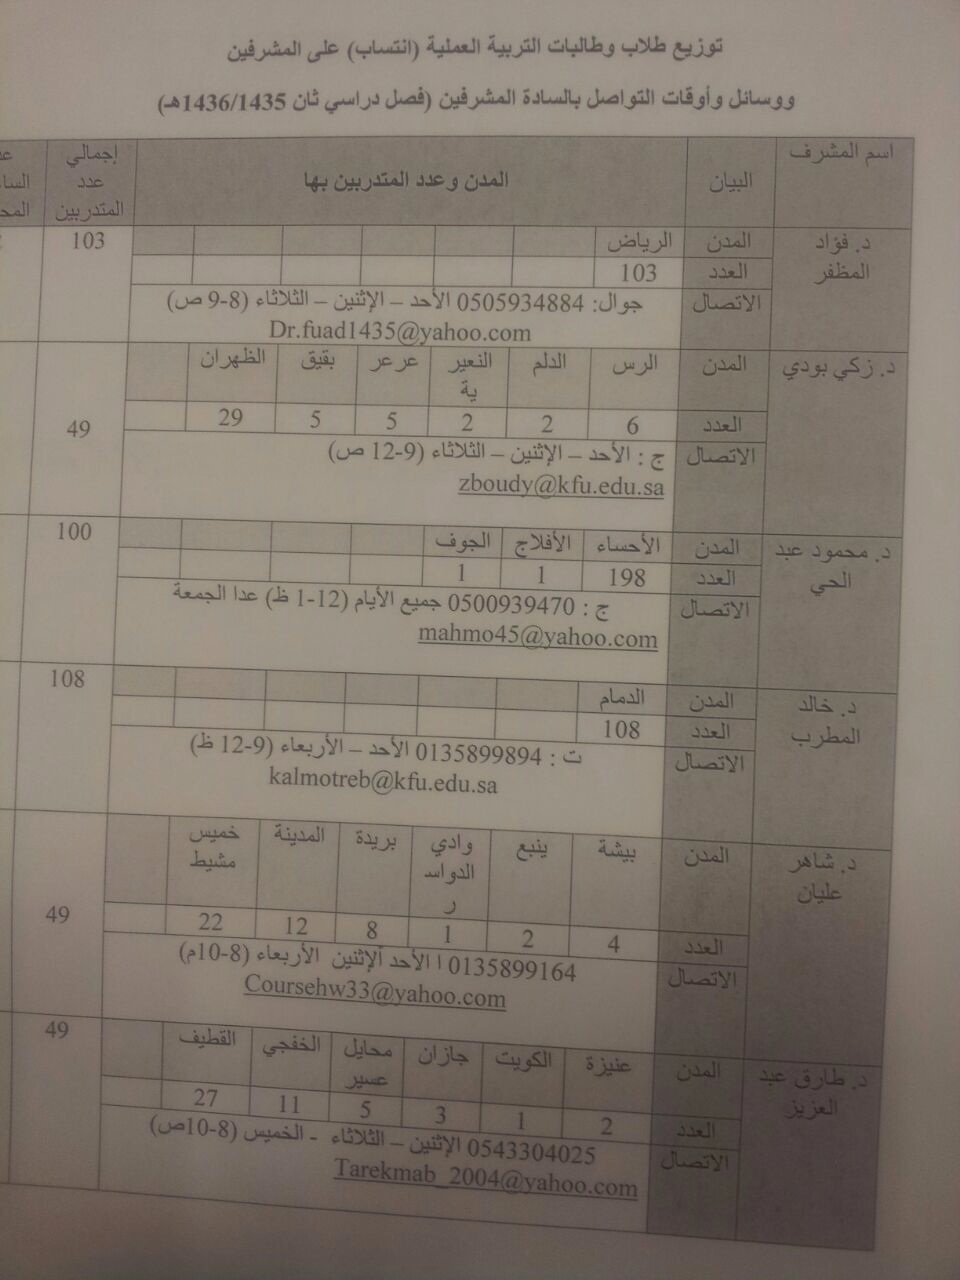 توزيع طلاب وطالبات التربية العملية (انتساب) على المشرفين
ووسائل وأوقات التواصل بالسادة المشرفين (فصل دراسي ثان 1436/1435هـ)
اسم المشرف البيان المدن وعدد المتدربين بها إجمالي عدد المتدربين
د. فؤاد المظفر المدن الرياض 103
العدد 103
الاتصال جوال: 0505934884 الأحد – الإثنين – الثلاثاء (8-9 ص)
Dr.fuad1435@yahoo.com
د. زكي بودي المدن الرس الدلم النعيرية عرعر بقيق الظهران 49
العدد 6 2 2 5 5 29
الاتصال ج : الأحد – الإثنين – الثلاثاء (9-12 ص)
zboudy@kfu.edu.sa
د. محمود عبد الحي المدن الأحساء الأفلاج الجوف 100
العدد 198 1 1
الاتصال ج : 0500939470 جميع الأيام (12-1 ظ) عدا الجمعة
mahmo45@yahoo.com
د. خالد المطرب المدن الدمام 108
العدد 108
الاتصال ت : 0135899894 الأحد – الأربعاء (9-12 ظ)
kalmotreb@kfu.edu.sa
د. شاهر عليان المدن بيشة ينبع وادي الدواسر بريدة المدينة خميس مشيط 49
العدد 4 2 1 8 12 22
الاتصال 0135899164 ا الأحد الإثنين الأربعاء (8-10م)
Coursehw33@yahoo.com
د. طارق عبد العزيز المدن عنيزة الكويت جازان محايل عسير الخفجي القطيف 49
العدد 2 1 3 5 11 27
الاتصال 0543304025 الإثنين – الثلاثاء - الخميس (8-10ص)
Tarekmab_2004@yahoo.com